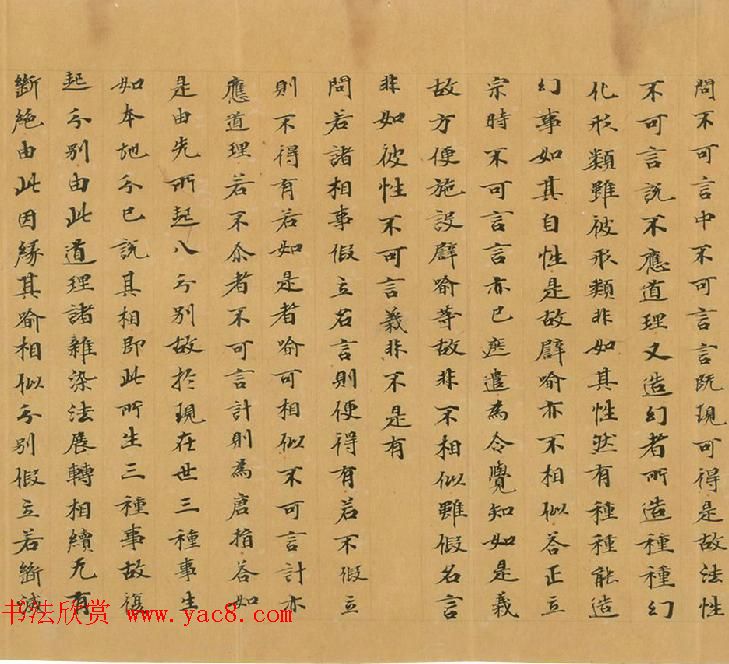 問不可言中不可言言既現可得是故法性
不可言說不應道理又造幻者所造種種幻
化形類雖彼形類非如其性然有種種能造
幻事如其自性是故譬喻亦不相似答正立
宗時不可言言亦已遮遣為令覺知如是義
故方便施設譬喻等故非不相似雖假名言
非如彼性不可言義非不是有
問若諸相事假立名言則便得有若不假立
則不得有若如是者喻可相似不可言計亦
應道理若不尒者不可言計則為唐捐答如
是由先所起八分別故於現在世三種事生
如本地分已說其相即此所生三種事故復
起分別由此道理諸雜染法展轉相續无有
斷絕由此因緣其喻相似分別假立若斷滅
书法欣赏 www.yac8.com